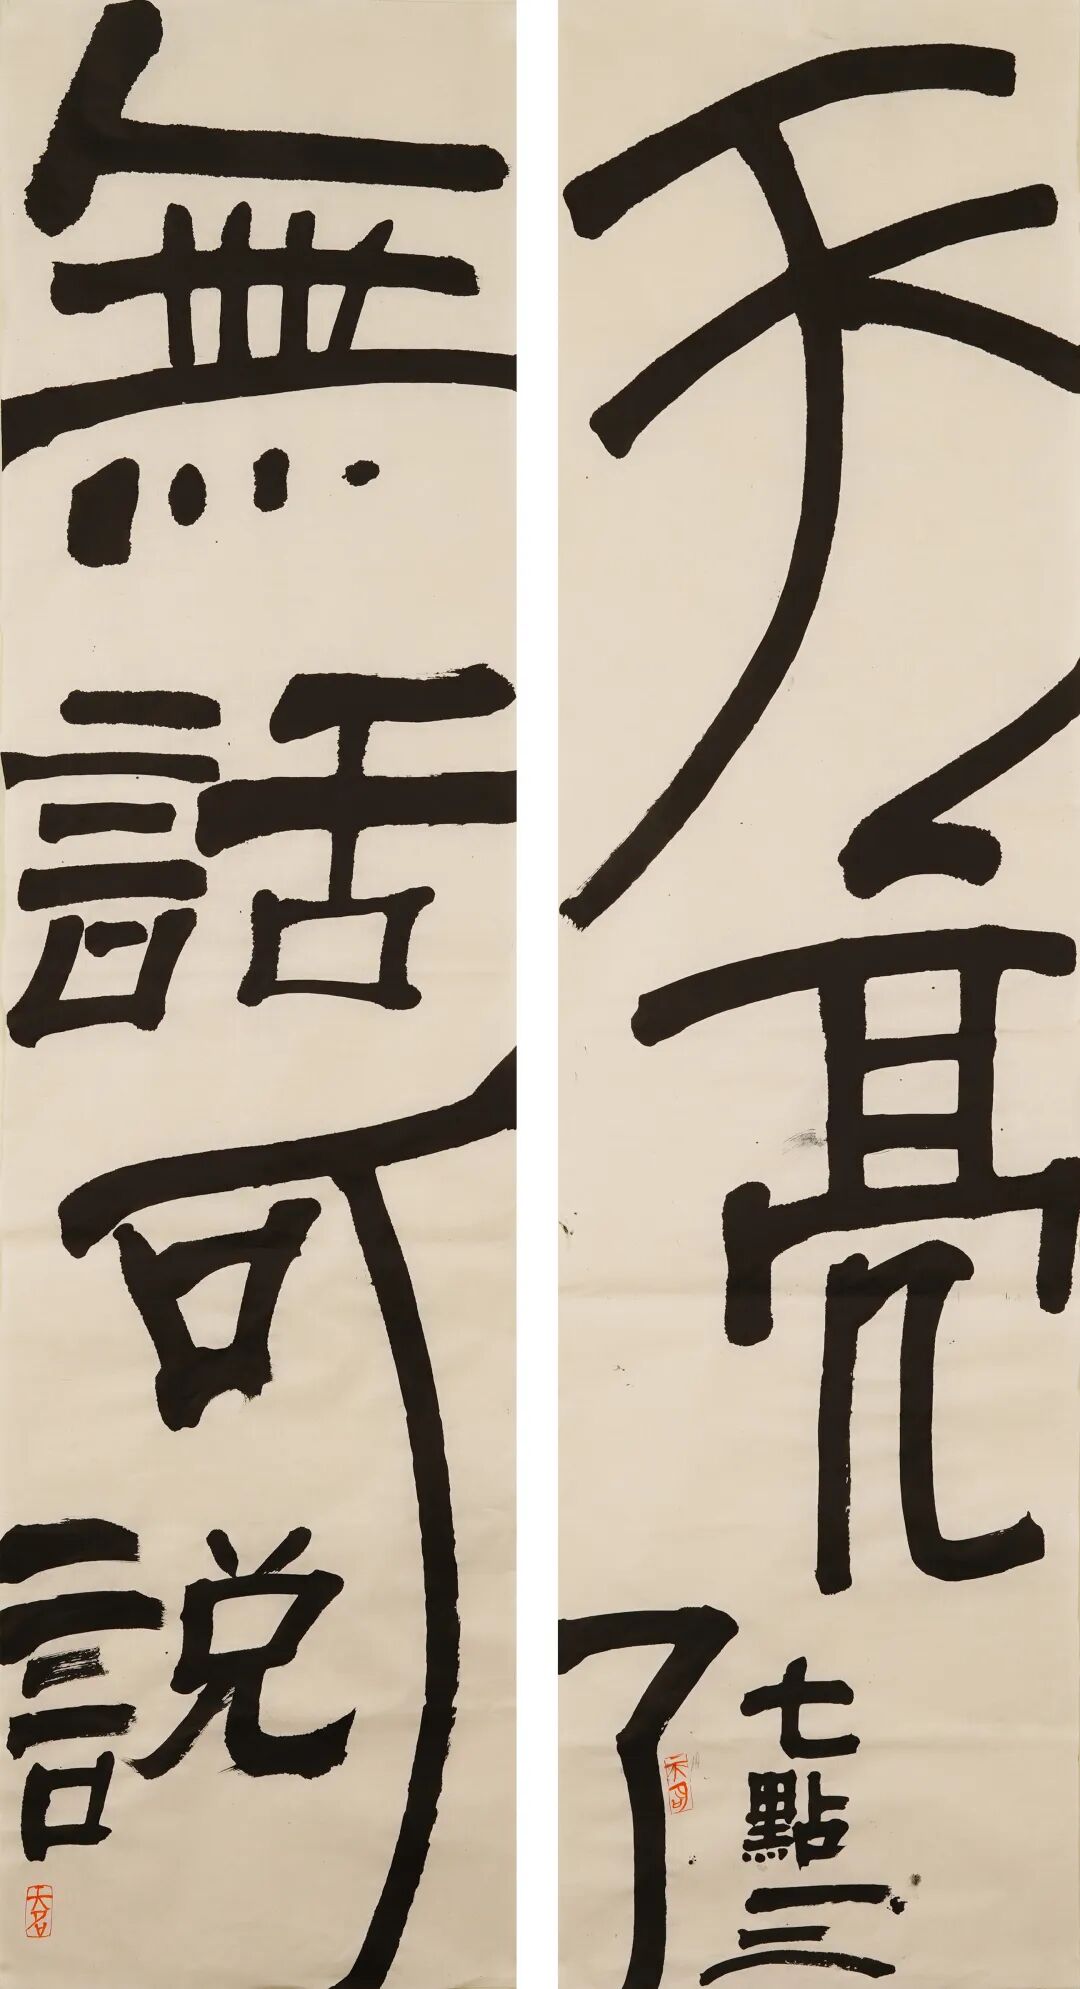 天亮了
七點三
無話可說
天名